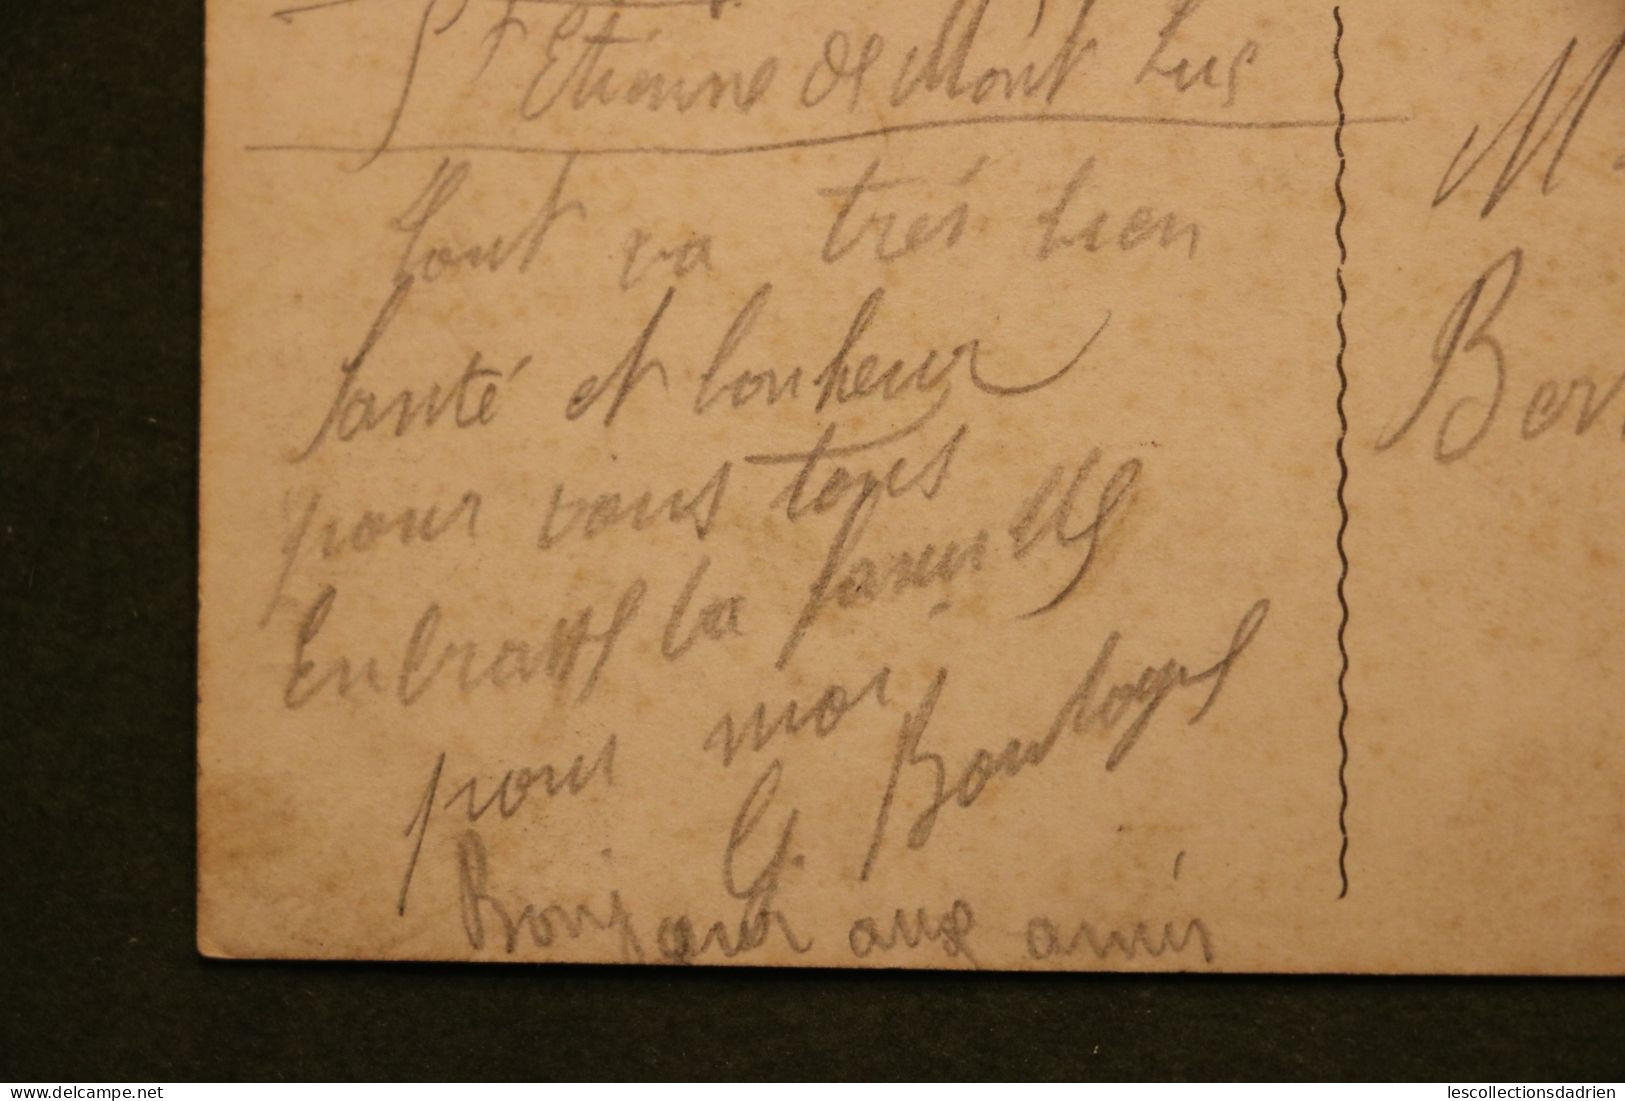 St Etienne de Mont Luc
Tout va très bien
Santé et bonheur
pour vous tous
Enbrasse la famille
pour moi
G. Boulogne
Bonjour aux amis
M
Ber
lescollectionsdadrien